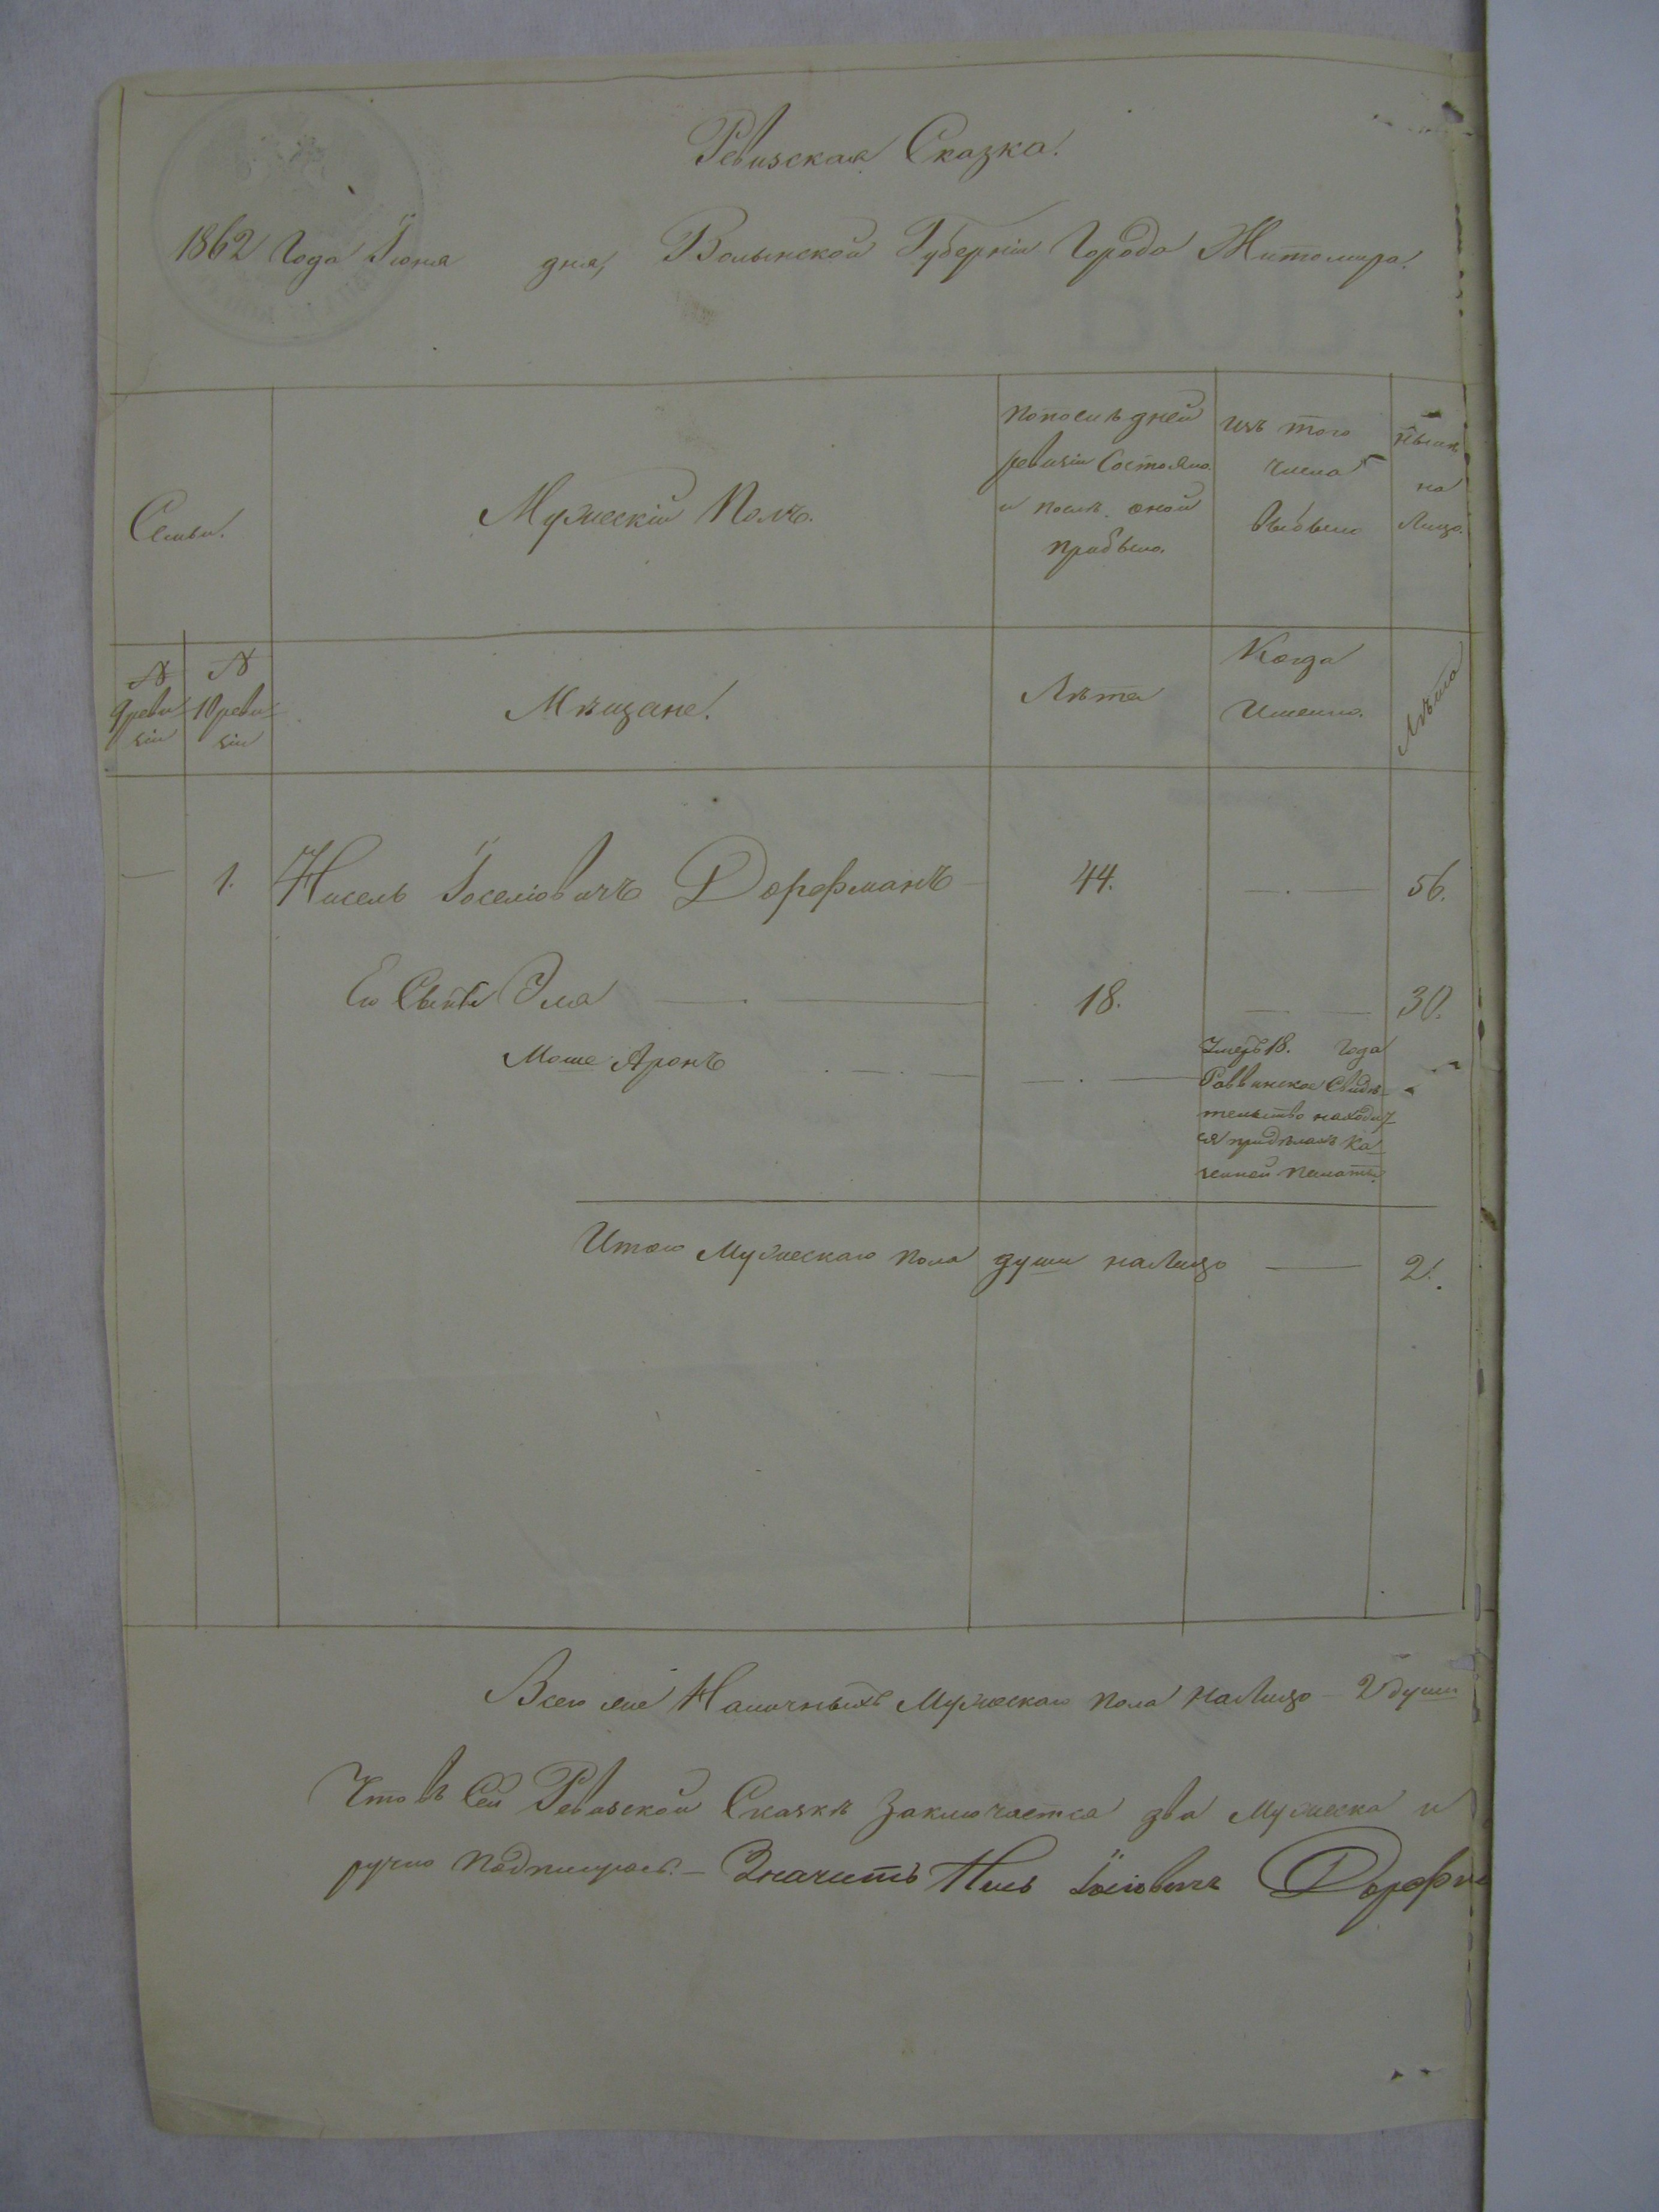 Ревизская Сказка.
1862 Года Іюня дня, Волынской Губерніи Города Житомира.
Семьи.
Мужескій Полъ.
ревизіи Состояло
и послѣ оной
прибыло.
Изъ того
числа
Выбыло
Нынѣ
на
Лицо.
№
9 реви-
зіи
№
10 реви-
зіи
Мѣщане.
Лѣта
Когда
Именно.
Лѣта
— 1. Нисель Іоселіовичъ Дорфманъ 44. — 56.
Его Сыновья Эла — 18. — 30.
Моше Аронъ —
Умеръ 18. Года
Раввинское Свидѣ-
тельство находит-
ся придѣлахъ Ка-
зенной Палаты.
Итого Мужескаго пола души налицо — 2.
Всего Наличныхъ Мужескаго пола налицо — 2 души
Что въ Сей Ревизской Сказкѣ Заключается два мужеска и
ручно подписуюсь. — Значитъ Іоселіовичъ Дорфм